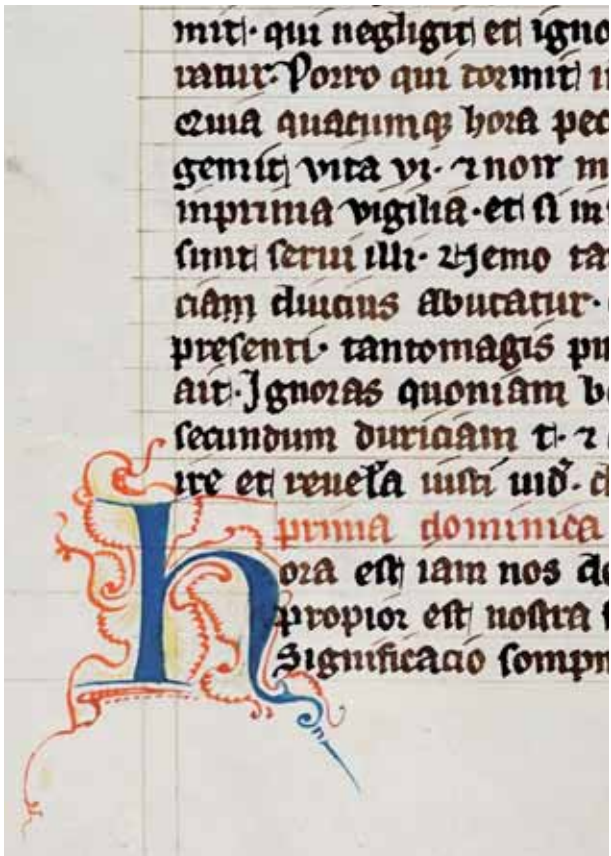 mit · qui negligit et igno
ratur · Porro qui dormit i
quia quacumqꝫ hora pec
gemit vita vi · ⁊ non m
inprima vigilia · et si in
sunt serui illi · Nemo ta
ciam diucius abutatur ·
presenti · tantomagis pu
ait · Ignoras quoniam b
secundum duriciam t · ⁊
ire et reuela iusti iud · d
prima dominica
hora est iam nos de
propior est nostra
Significacio sompn